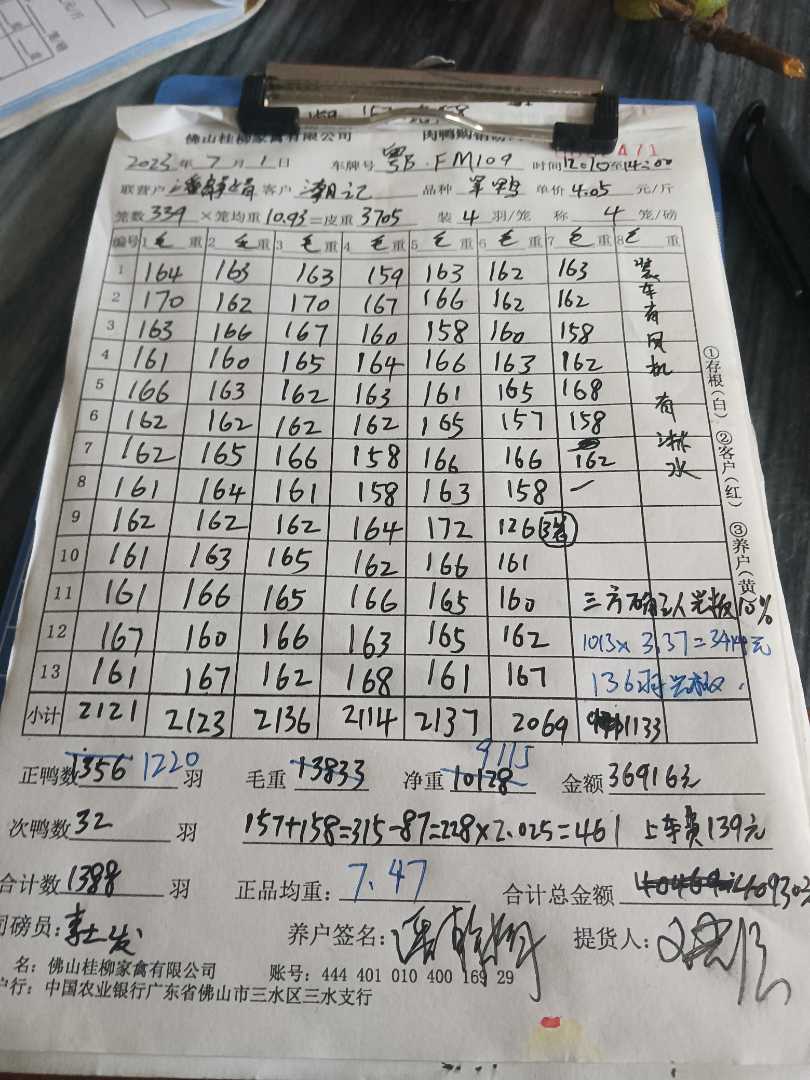 佛山桂柳家禽有限公司 肉鸭购销
2023年7月1日 车牌号 粤B·FM109 时间12:10至14:00
联营户 客户 潮记 品种 草鸭 单价4.05元/斤
笼数339×笼均重10.93=皮重3705 装4羽/笼 称4笼/磅
编号 1毛重 2毛重 3毛重 4毛重 5毛重 6毛重 7毛重 8毛重
1 164 163 163 159 163 162 163
2 170 162 170 167 166 162 162
3 163 166 167 160 158 160 158
4 161 160 165 164 166 163 162
5 166 163 162 163 161 165 168
6 162 162 162 162 165 157 158
7 162 165 166 158 166 166 162
8 161 164 161 158 163 158 一
9 162 162 162 164 172 126
10 161 163 165 162 166 161
11 161 166 165 166 165 160 三方确 10%
12 167 160 166 163 165 162 1013×3.37=3414元
13 161 167 162 168 161 167 136
小计 2121 2123 2136 2114 2137 2069 1133
装车有风机有淋水
①存根(白) ②客户(红) ③养户(黄
正鸭数1356 1220羽 毛重13833 净重10128 9115 金额36916元
次鸭数32羽 157+158=315-87=228×2.025=461 上车费139元
合计数1388羽 正品均重:7.47 合计总金额 40930元
司磅员: 养户签名: 提货人:
名:佛山桂柳家禽有限公司 账号:444 401 010 400 169 29
户行:中国农业银行广东省佛山市三水区三水支行